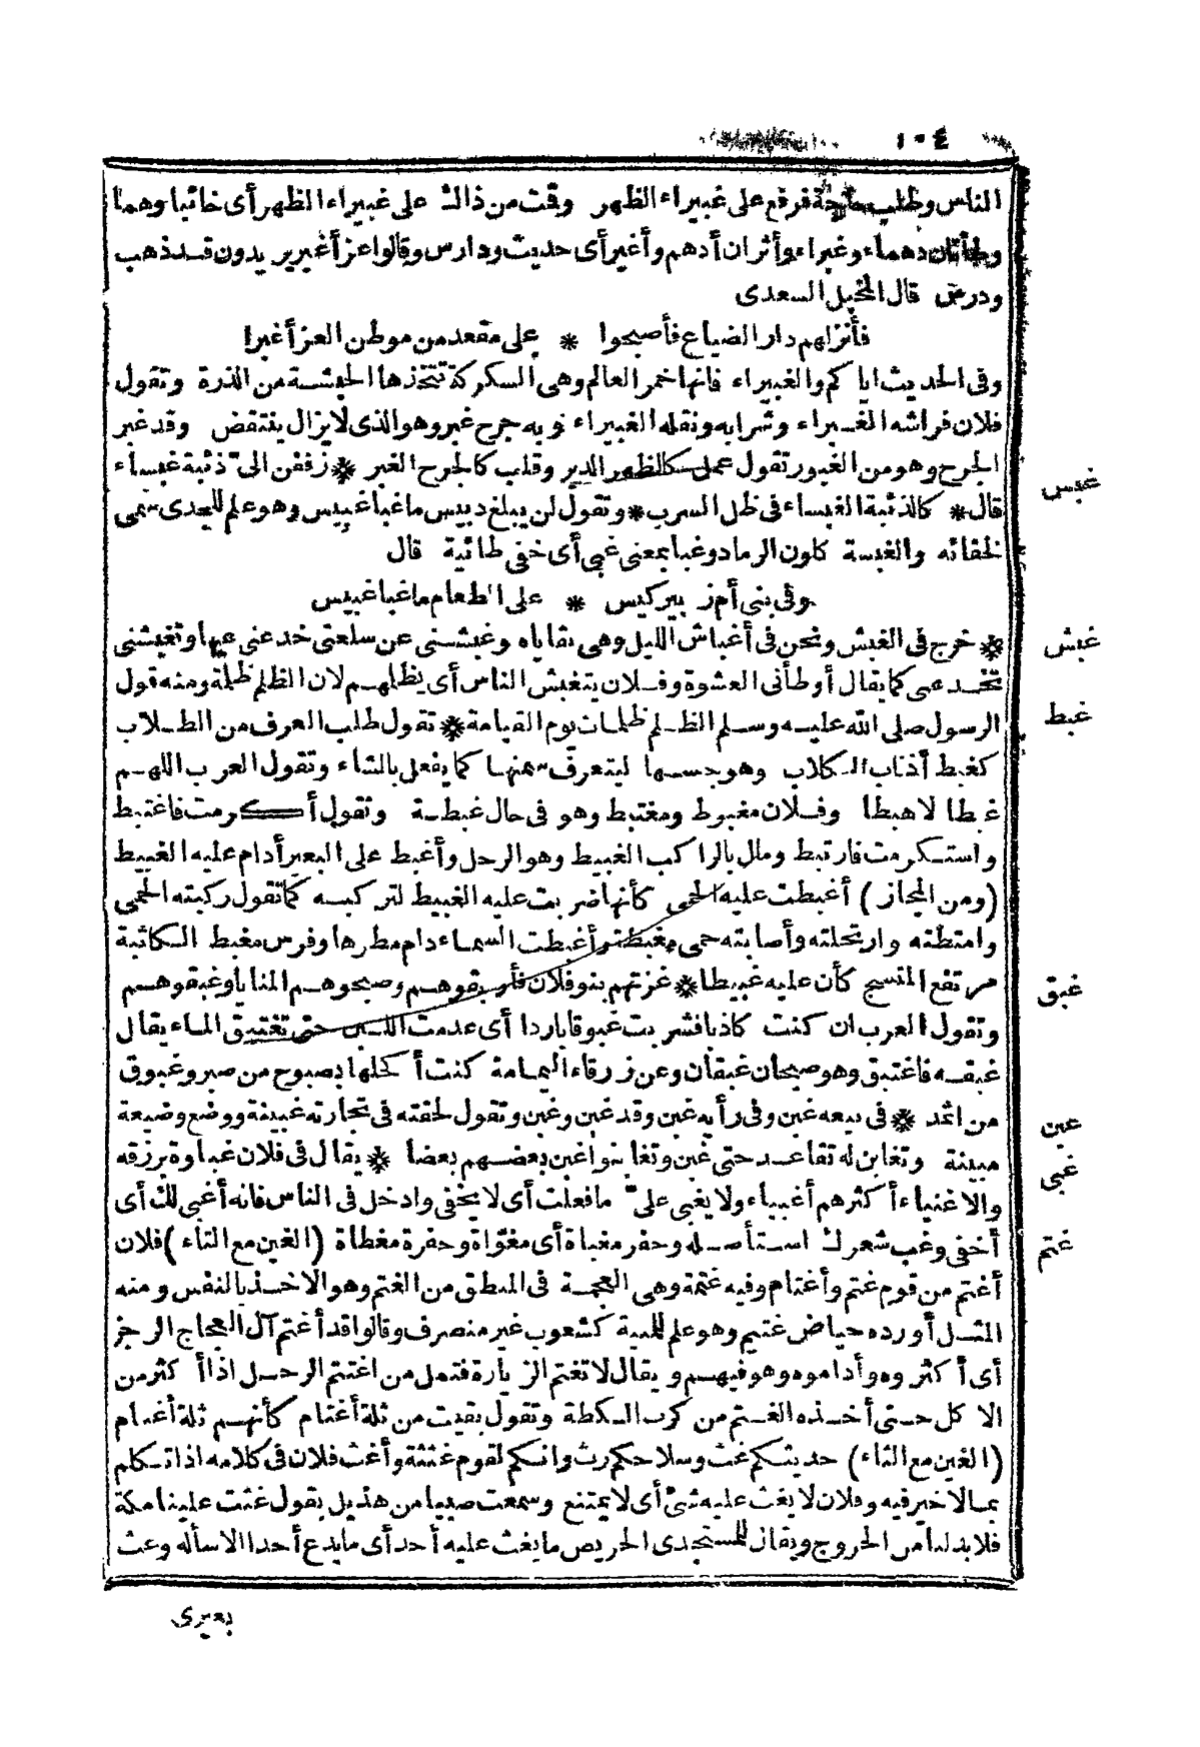 ١٠٤
الناس وطلب حاجة فرقع على غبيراء الظهر وقت من ذالك على غبيراء الظهر أى خائبا وهما
وطأتان دهماء وغبراء وأثران أدهم وأغبر أى حديث ودارس وقالوا عز أغبر يريدون قد ذهب
ودرس قال المخبل السعدى
فأنزلهم دار الضياع فأصبحوا * على مقعد من موطن العز أغبرا
وفى الحديث اياكم والغبيراء فانها خمر العالم وهى السكركة تتخذها الحبشة من الذرة وتقول
فلان فراشه الغبراء وشرابه ونقله الغبيراء وبه جرح غبر وهو الذى لا يزال ينتقض وقد غبر
الجرح وهو من الغبور تقول عمل كالظهر الدبر وقلب كالجرح الغبر * زففن الى ذئبة غبساء
غبس
قال * كالذئبة الغبساء فى ظل السرب * وتقول لن يبلغ دبيس ما غبا غبيس وهو علم للجدى سمى
لخفائه والغبسة كلون الرماد وغبا بمعنى غبى أى خفى طائية قال
وفى بنى أم زبير كيس * على الطعام ما غبا غبيس
* خرج فى الغبش ونحن فى أغباش الليل وهى بقاياه وغبشنى عن سلعتى خدعنى عنها وتغبشنى
غبش
تخدعنى كما يقال أوطأنى العشوة وفلان يتغبش الناس أى يظلهم لان الظلم ظلمة ومنه قول
الرسول صلى الله عليه وسلم الظلم ظلمات يوم القيامة * تقول طلب العرف من الطلاب
غبط
كغبط أذناب الكلاب وهو جسها ليتعرف سمنها كما يفعل بالشاء وتقول العرب اللهم
غبطا لا هبطا وفلان مغبوط ومغتبط وهو فى حال غبطة وتقول أكرمت فاغتبط
واستكرمت فارتبط ومال بالراكب الغبيط وهو الرحل وأغبط على البعير أدام عليه الغبيط
(ومن المجاز) أغبطت عليه الحمى كأنها ضربت عليه الغبيط لتركبه كما تقول ركبته الحمى
وامتطته وارتحلته وأصابته حمى مغبطة وأغبطت السماء دام مطرها وفرس مغبط الكاثبة
مرتفع المنسج كأن عليه غبيطا * غزتهم بنو فلان فأربقوهم وصبحوهم المنايا وغبقوهم
غبق
وتقول العرب ان كنت كاذبا فشربت غبوقا باردا أى عدمت اللبن حتى تغتبق الماء يقال
غبقه فاغتبق وهو صبحان غبقان وعن زرقاء اليمامة كنت أكحلها بصبوح من صبر وغبوق
من اثمد * فى بيعه غبن وفى رأيه غبن وقد غبن وغبن وتقول لحقته فى تجارته غبينة ووضع وضيعة
غبن
مبينة وتغابن له تقاعد حتى غبن وتغابنوا غبن بعضهم بعضا * يقال فى فلان غباوة برزقه
غبى
والاغنياء أكثرهم أغبياء ولا يغبى على ما فعلت أى لا يخفى وادخل فى الناس فانه أغبى لك أى
أخفى وغب شعرك استأصله وحفر مغباة أى مغواة وحفرة مغطاة (الغين مع التاء) فلان
غتم
أغتم من قوم غتم وأغتام وفيه غتمة وهى العجمة فى المنطق من الغتم وهو الاخذ بالنفس ومنه
المثل أورده حياض غتيم وهو علم للمنية كشعوب غير منصرف وقالوا قد أغتم آل العجاج الرجز
أى أكثروه وأداموه وهو فيهم ويقال لا تغتم الزيارة فتمل من اغتتم الرجل اذا أكثر من
الاكل حتى أخذه الغتم من كرب الكظة وتقول بقيت من ثلة أغتام كأنهم ثلة أغنام
(الغين مع الثاء) حديثكم غث وسلاحكم رث وانكم لقوم غثثة وأغث فلان فى كلامه اذا تكلم
بما لا خير فيه وفلان لا يغث عليه شئ أى لا يمتنع وسمعت صبيا من هذيل يقول غثت علينا مكة
فلا بد لنا من الخروج ويقال للمستجدى الحريص ما يغث عليه أحد أى ما يدع أحدا الا سأله وغث
بعيرى